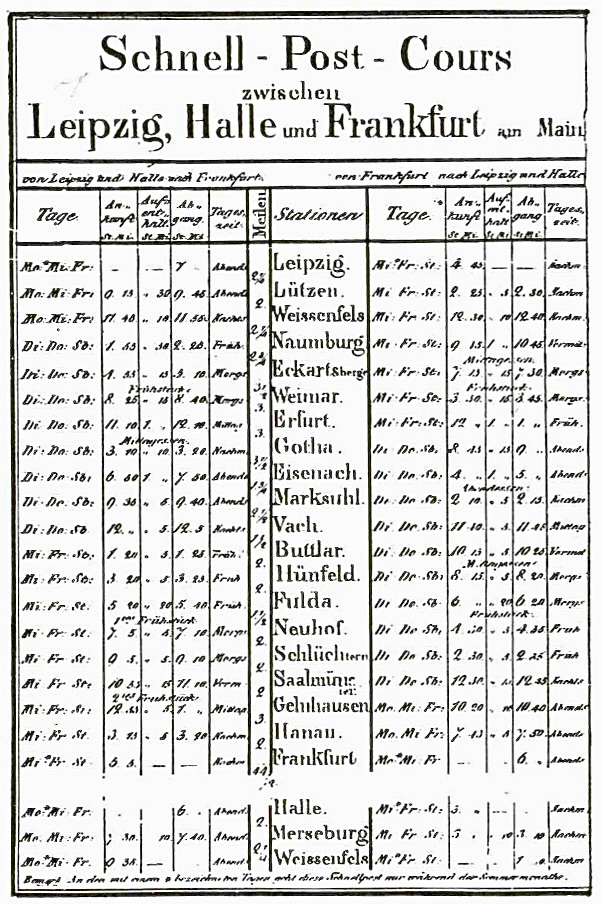 Schnell - Post - Cours
zwischen
Leipzig, Halle und Frankfurt am Main
von Leipzig und Halle nach Frankfurt. von Frankfurt nach Leipzig und Halle
Tage. An- kunft Auf- ent- halt Ab- gang. Tages- zeit. Meilen Stationen Tage. An- kunft Auf- ent- halt Ab- gang Tages- zeit.
St. Mi. St. Mi. St. Mi. St. Mi. St. Mi. St. Mi.
Mo* Mi: Fr: — — 7 Abends Leipzig. Mi* Fr: St: 4 45 — —
Mo: Mi: Fr: 9. 15 „ 30 9. 45 Abends 2 Lützen. Mi Fr: St: 2. 25 „ 5 2. 30
Mo: Mi: Fr: 11. 40 „ 15 11. 55 Nachts Weissenfels Mi Fr: St: 12. 30 „ 10 12. 40
Di: Do: Sb: 1. 55 „ 30 2. 25 Früh Naumburg Mi Fr: St: 9 15 1 „ 10 45
Mittagessen
Do: Sb: 4. 55 „ 15 5. 10 Morgs Eckartsberge Mi Fr: St: 7 15 „ 15 7 30 Morgs
Frühstück Frühstück
Di: Do: Sb: 8. 25 „ 15 8. 40 Morgs Weimar. Mi Fr: St: 3. 30 „ 15 3. 45 Morgs
Di: Do: Sb: 11. 10 1. „ 12. 10 Mittags 3. Erfurt. Mi: Fr: St: 12 „ 1 „ 1. „ Früh.
Mittagessen
Di: Do: Sb: 3. 10 „ 10 3. 20 3. Gotha. Di: Do: Sb: 8. 45 „ 15 9. „ Abends
Di: Do: Sb: 6. 50 1 „ 7. 50 Abends Eisenach. Di: Do: Sb: 4. „ 1 „ 5. „ Abends
Abendessen
Di: Do: Sb: 9. 35 „ 5 9. 40 Abends Marksuhl. Di Do Sb: 2 10 „ 5 2. 15
Di: Do: Sb. 12. „ „ 5 12. 5 Nachts Vach. Di Do Sb: 11 40 „ 5 11. 45 Mittag
Mi: Fr: St: 1. 20 „ 5 1. 25 Früh Buttlar. Di Do Sb: 10 15 „ 5 10 20
Mi: Fr: St: 3. 20 „ 5 3. 25 Früh 2. Hünfeld. Di Do Sb: 8. 15 „ 5 8. 20 Morgs
Mi: Fr: St: 5 20 „ 20 5. 40 Früh Fulda. Di Do. Sb: 6. „ „ 20 6 20 Morgs
Frühstück Frühstück.
Mi: Fr: St: 7. 5 „ 5 7. 10 Morgs Neuhof. Di Do Sb: 4. 30 „ 5 4. 35 Früh
Mi: Fr St: 9 5 „ 5 9. 10 Morgs 2. Schlüchtern Di Do Sb: 2 30 „ 5 2. 35 Früh
Mi Fr St: 10 55 „ 15 11. 10 Vorm 2 Saalmünster Di Do Sb: 12 30 „ 5 12. 35 Nachts
Frühstück
Mi: Fr: St: 12. 55 „ 5 1. „ Mittag Gelnhausen Mo. Mi: Fr: 10 20 „ 20 10. 40 Abends
Mi: Fr: St: 3. 15 „ 5 3. 20 3. Hanau. Mo. Mi: Fr: 7. 45 „ 5 7. 50 Abends
Mi* Fr: St. 5 5. — — 2. Frankfurt Mo* Mi: Fr — — 6. „ Abends
44
Mo* Mi: Fr. 6. „ Abend. Halle. Mi* Fr: St: 5. „ — —
Mo. Mi: Fr: 7 30. 10 7. 40. Abend. 2. Merseburg Mi Fr: St: 3 „ 10 3. 10
Mo* Mi: Fr. 9 35. — Abend Weissenfels Mi* Fr: St —
Bemerk. An den mit einem * bezeichneten Tagen geht diese Schnellpost nur während der Sommermonathe.